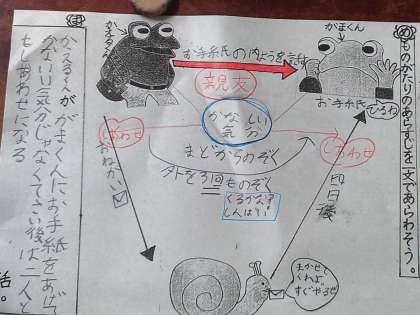 めものがたりのあらすじを一文であらわそう。
がまくん
かえるくん
お手紙の内ようを言う
親友
かなしい
気分
お手紙
もらう
しあわせ
しあわせ
まどからのぞく
外を3回ものぞく
くるかな？
しんぱい
おねがい
四日後
まかせて
くれよ
すぐやるぜ
ま
かえるくんががまくんにお手紙をあげ
かなしい気分じゃなくてさい後は二人と
もしあわせになる
話。